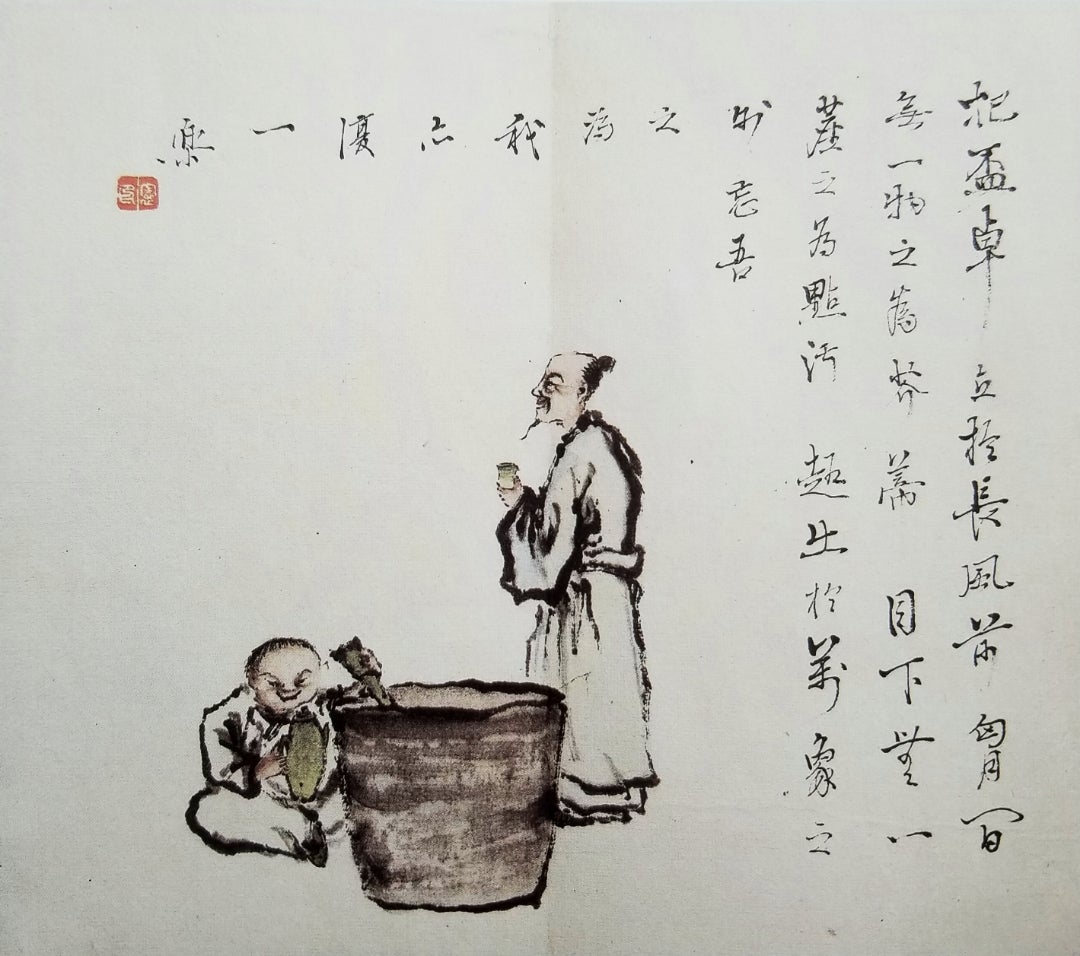 把盃卓立於長風前胷間
無一物之為芥蔕目下無一
塵之為點污超出於萬象之
外忘吾
之
為
我
亦
復
一
樂